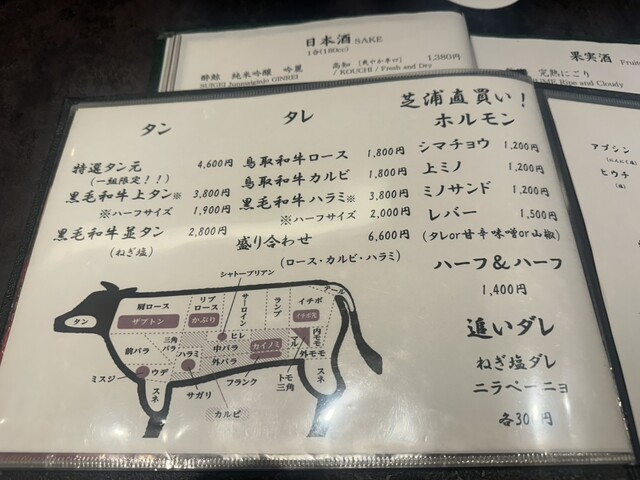 日本酒 SAKE
1合(180cc)
酔鯨 純米吟醸 吟麗 高知 [爽やか辛口] 1,380円
SUIGEI Junmaiginjo GINREI / KOUCHI / Fresh and Dry
果実酒 Fruit
完熟にごり
UME Ripe and Cloudy
タン
特選タン元 4,600円
(一組限定!!)
黒毛和牛上タン※ 3,800円
※ハーフサイズ 1,900円
黒毛和牛並タン 2,800円
(ねぎ塩)
タレ
鳥取和牛ロース 1,800円
鳥取和牛カルビ 1,800円
黒毛和牛ハラミ※ 3,800円
※ハーフサイズ 2,000円
盛り合わせ 6,600円
(ロース・カルビ・ハラミ)
芝浦直買い!
ホルモン
シマチョウ 1,200円
上ミノ 1,200円
ミノサンド 1,200円
レバー 1,500円
(タレor甘辛味噌or山椒)
ハーフ&ハーフ
1,400円
追いダレ
ねぎ塩ダレ
ニラペーニョ
各30円
アブシン
(にんにく塩)
ヒウチ
(塩)
シャトーブリアン
タン
肩ロース
ザブトン
リブロース
かぶり
サーロイン
ランプ
イチボ
イチボ先
テール
ヒレ
三角バラ
前バラ
ハラミ
中バラ
外バラ
カイノミ
マル
内モモ
外モモ
ミスジ
ウデ
スネ
サガリ
フランク
カルビ
トモ三角
スネ